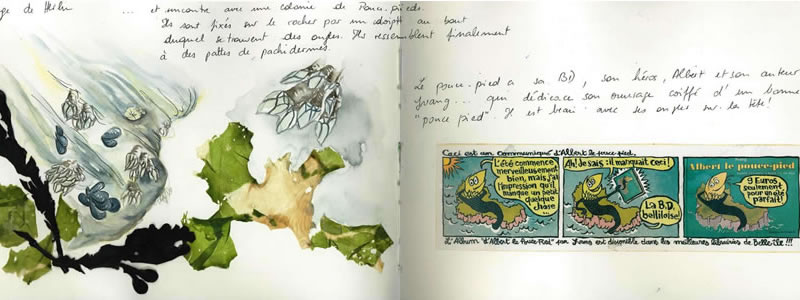 ... et encontre avec une colonie de Pouce-pieds.
Ils sont fixés sur le rocher par un doigt au bout
duquel se trouvent des ongles. Ils ressemblent finalement
à des pattes de pachidermes.
Le pouce-pied a sa BD, son héros, Albert et son auteur
Yvang... qui dédicace son ouvrage coiffé d'un bonnet
"pouce pied". Il est beau avec ses ongles sur la tête!
Ceci est un communiqué d'Albert le pouce-pied.
L'été commence
merveilleusement
bien, mais j'ai
l'impression qu'il
manque un petit
quelque
chose...
Ah! Je sais, il manquait ceci!
La B.D.
belliloise
Albert le pouce-pied
9 Euros
seulement
pour un été
parfait!
L'Album "d'Albert le Pouce-Pied" par est disponible dans les meilleures librairies de Belle-ile!!!